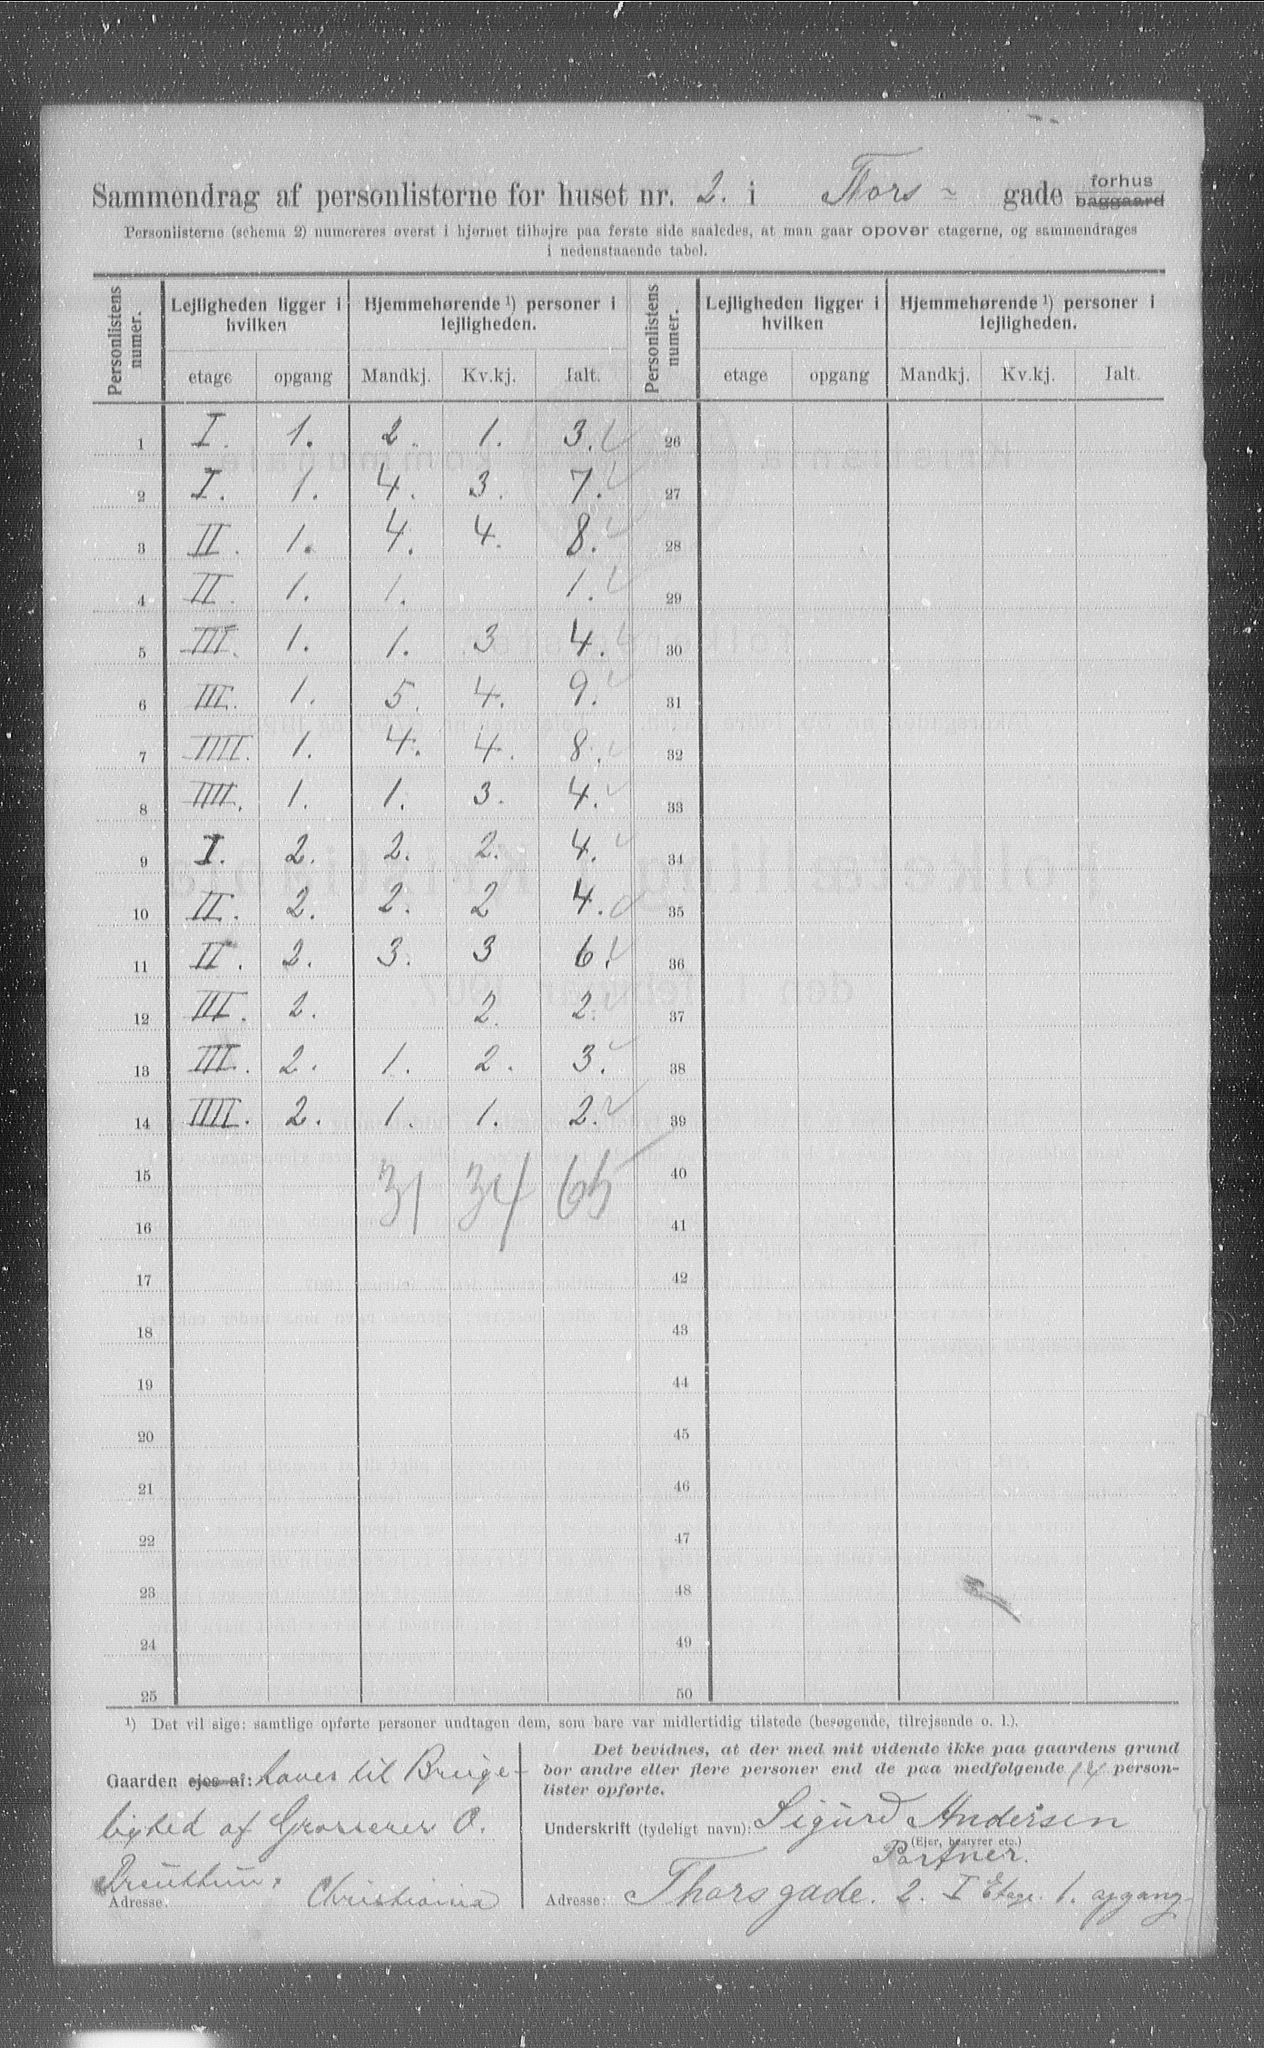 Sammendrag af personlisterne for huset nr. 2. i Thors - gade forhus baggaard
Personlisterne (schema 2) numereres øverst i hjørnet tilhøjre paa første side saaledes, at man gaar opover etagerne, og sammendrages
i nedenstaaende tabel.
Personlistens numer. Lejligheden ligger i hvilken Hjemmehørende ¹) personer i lejligheden. Personlistens numer. Lejligheden ligger i hvilken Hjemmehørende ¹) personer i lejligheden.
etage opgang Mandkj. Kv.kj. Ialt. etage opgang Mandkj. Kv.kj. Ialt.
1 I. 1. 2. 1. 3. 26
2 I. 1. 4. 3. 7. 27
3 II. 1. 4. 4. 8. 28
4 II. 1. 1. 1. 29
5 III. 1. 1. 3 4. 30
6 III. 1. 5. 4. 9. 31
7 IIII. 1. 4. 4. 8. 32
8 IIII. 1. 1. 3. 4. 33
9 I. 2. 2. 2. 4. 34
10 II. 2. 2. 2 4. 35
11 II. 2. 3. 3 6. 36
12 III. 2. 2. 2. 37
13 III. 2. 1. 2. 3. 38
14 IIII. 2. 1. 1. 2. 39
15 31 34 65 40
16 41
17 42
18 43
19 44
20 45
21 46
22 47
23 48
24 49
25 50
¹) Det vil sige: samtlige opførte personer undtagen dem, som bare var midlertidig tilstede (besøgende, tilrejsende o. l.).
Gaarden ejes af: haves til Bruge-
lighed af Grosserer O.
Adresse: Christiania
Det bevidnes, at der med mit vidende ikke paa gaardens grund
bor andre eller flere personer end de paa medfølgende 14 person-
lister opførte.
Underskrift (tydeligt navn): Sigurd Andersen
(Ejer, bestyrer etc.)
Portner.
Adresse: Thorsgade. 2. I Etage. 1. opgang